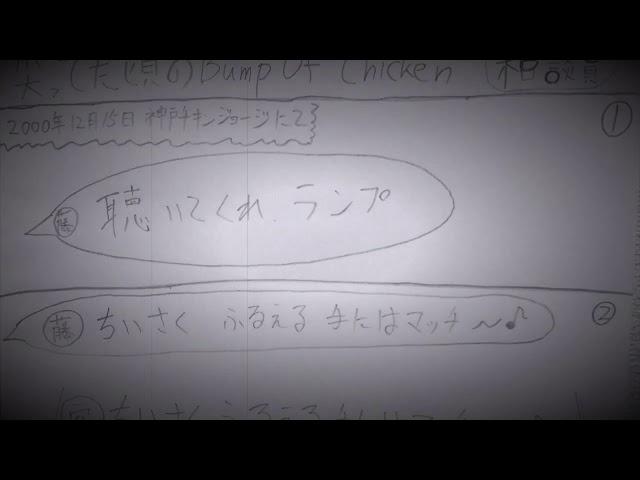 Bump Of Chicken
2000年12月15日 神戸チキンジョージにて
①
藤 聴いてくれ、ランプ
藤 ちいさく ふるえる 手にはマッチ〜♪
②
ちいさく ふるえる